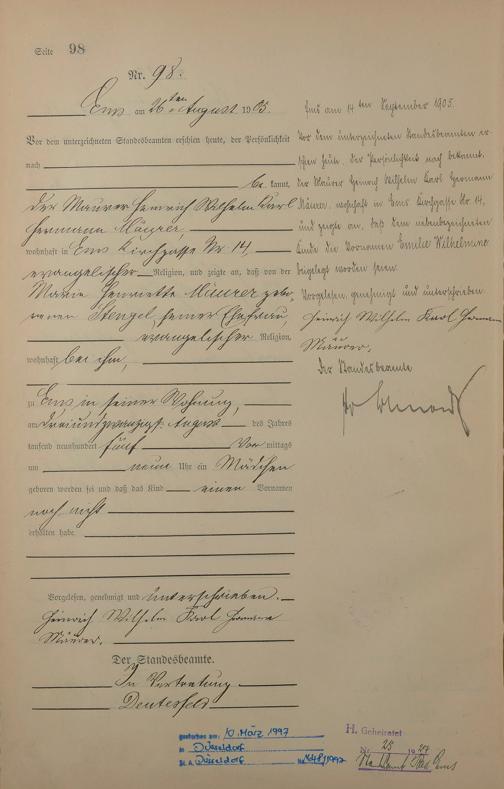 Seite 98
Nr. 98.
Ems am 26ten August 1905.
Vor dem unterzeichneten Standesbeamten erschien heute, der Persönlichkeit
nach
be kannt,
der Maurer Heinrich Wilhelm Karl
Hermann Mäurer
wohnhaft in Ems Kirchgasse Nr. 14,
evangelischer Religion, und zeigte an, daß von der
Marie Henriette Mäurer gebo-
renen Stengel, seiner Ehefrau,
evangelischer Religion,
wohnhaft bei ihm,
zu Ems in seiner Wohnung,
am dreiundzwanzigst August des Jahres
tausend neunhundert fünf Vor mittags
um neun Uhr ein Mädchen
geboren worden sei und daß das Kind einen Vornamen
noch nicht
erhalten habe.
Vorgelesen, genehmigt und unterschrieben.
Heinrich Wilhelm Karl Hermann
Mäurer.
Der Standesbeamte.
In Vertretung
Deutesfeld
Ems am 14ten September 1905.
Vor dem unterzeichneten Standesbeamten er-
schien heute, der Persönlichkeit nach bekannt,
der Maurer Heinrich Wilhelm Karl Hermann
Mäurer, wohnhaft in Ems Kirchgasse Nr. 14,
und zeigte an, daß dem nebenbezeichneten
Kinde die Vornamen Emilie Wilhelmine
beigelegt worden seien.
Vorgelesen, genehmigt und unterschrieben
Heinrich Wilhelm Karl Hermann
Mäurer.
Der Standesbeamte
gestorben am: 10. März 1997
in Düsseldorf
St. A. Düsseldorf Nr. /1997
H. Geheiratet
Nr. 28 19
Standesamt Bad Ems